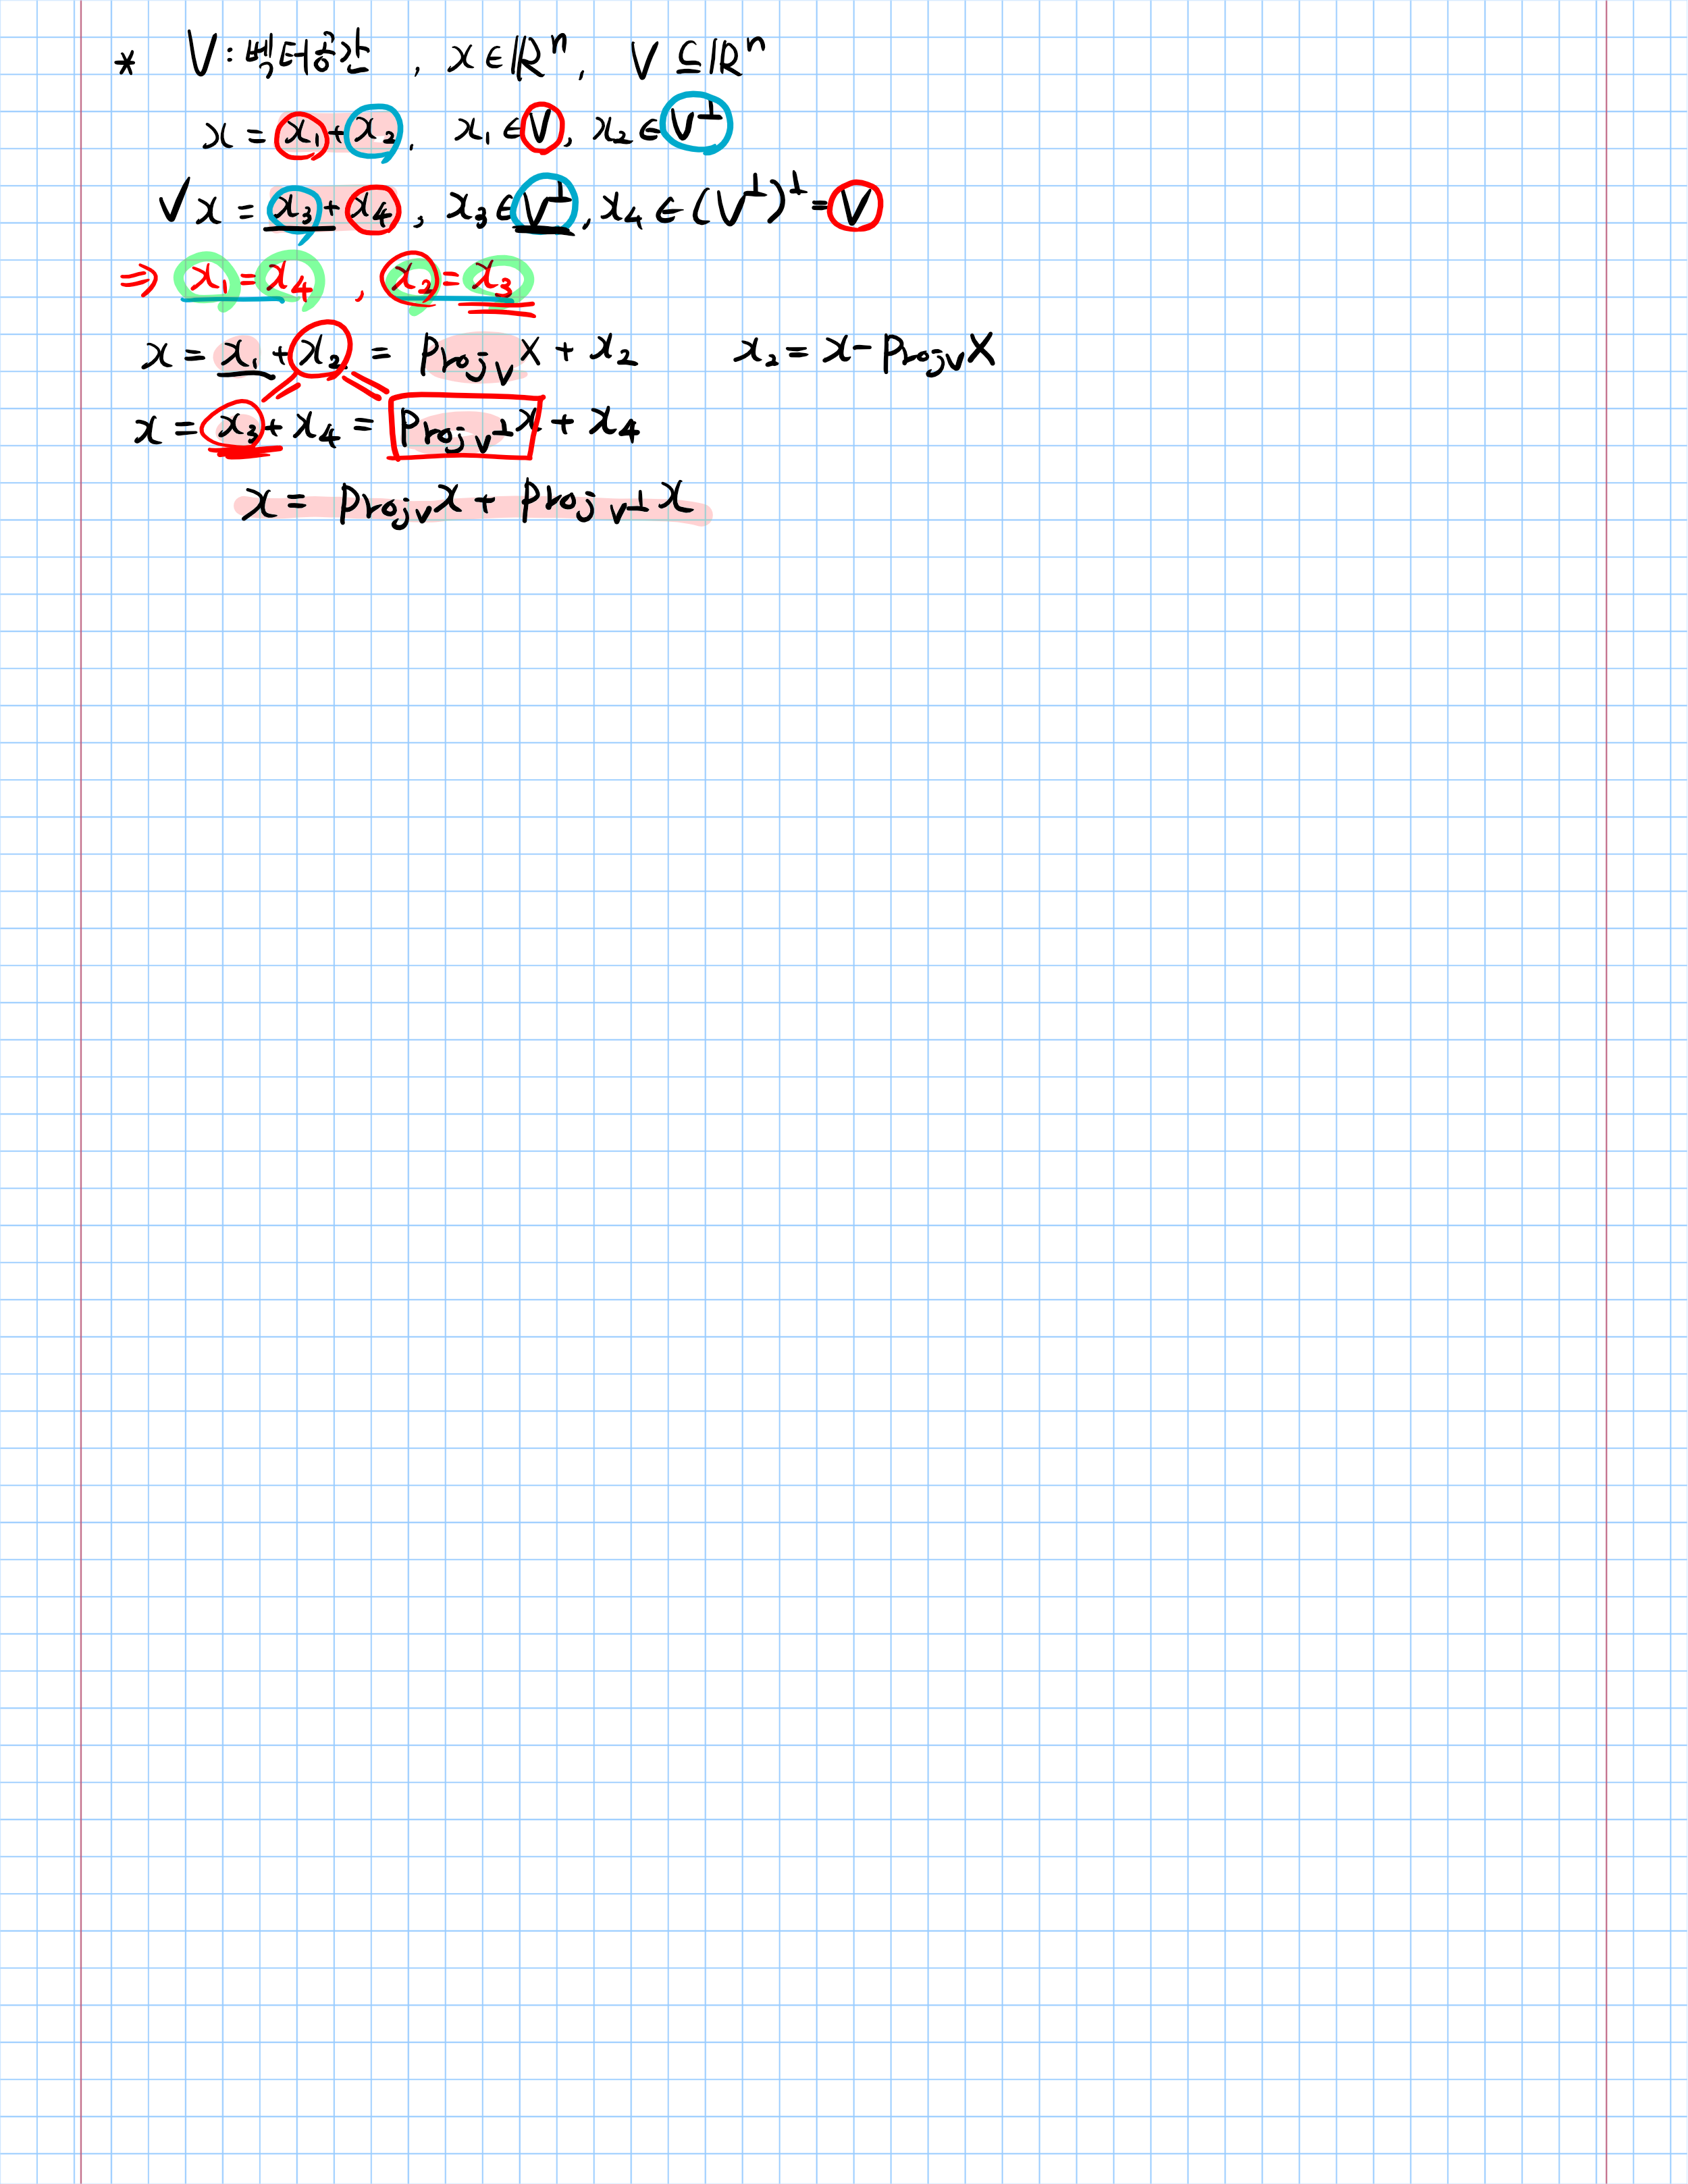 * V :벡터공간 , x ∈ ℝⁿ, V ⊆ ℝⁿ
x = x₁ + x₂, x₁ ∈ V, x₂ ∈ V^⊥
√ x = x₃ + x₄, x₃ ∈ V^⊥, x₄ ∈ (V^⊥)^⊥ = V
⇒ x₁ = x₄ , x₂ = x₃
x = x₁ + x₂ = Proj_V x + x₂ x₂ = x - Proj_V x
x = x₃ + x₄ = Proj_V^⊥ x + x₄
x = Proj_V x + Proj_V^⊥ x